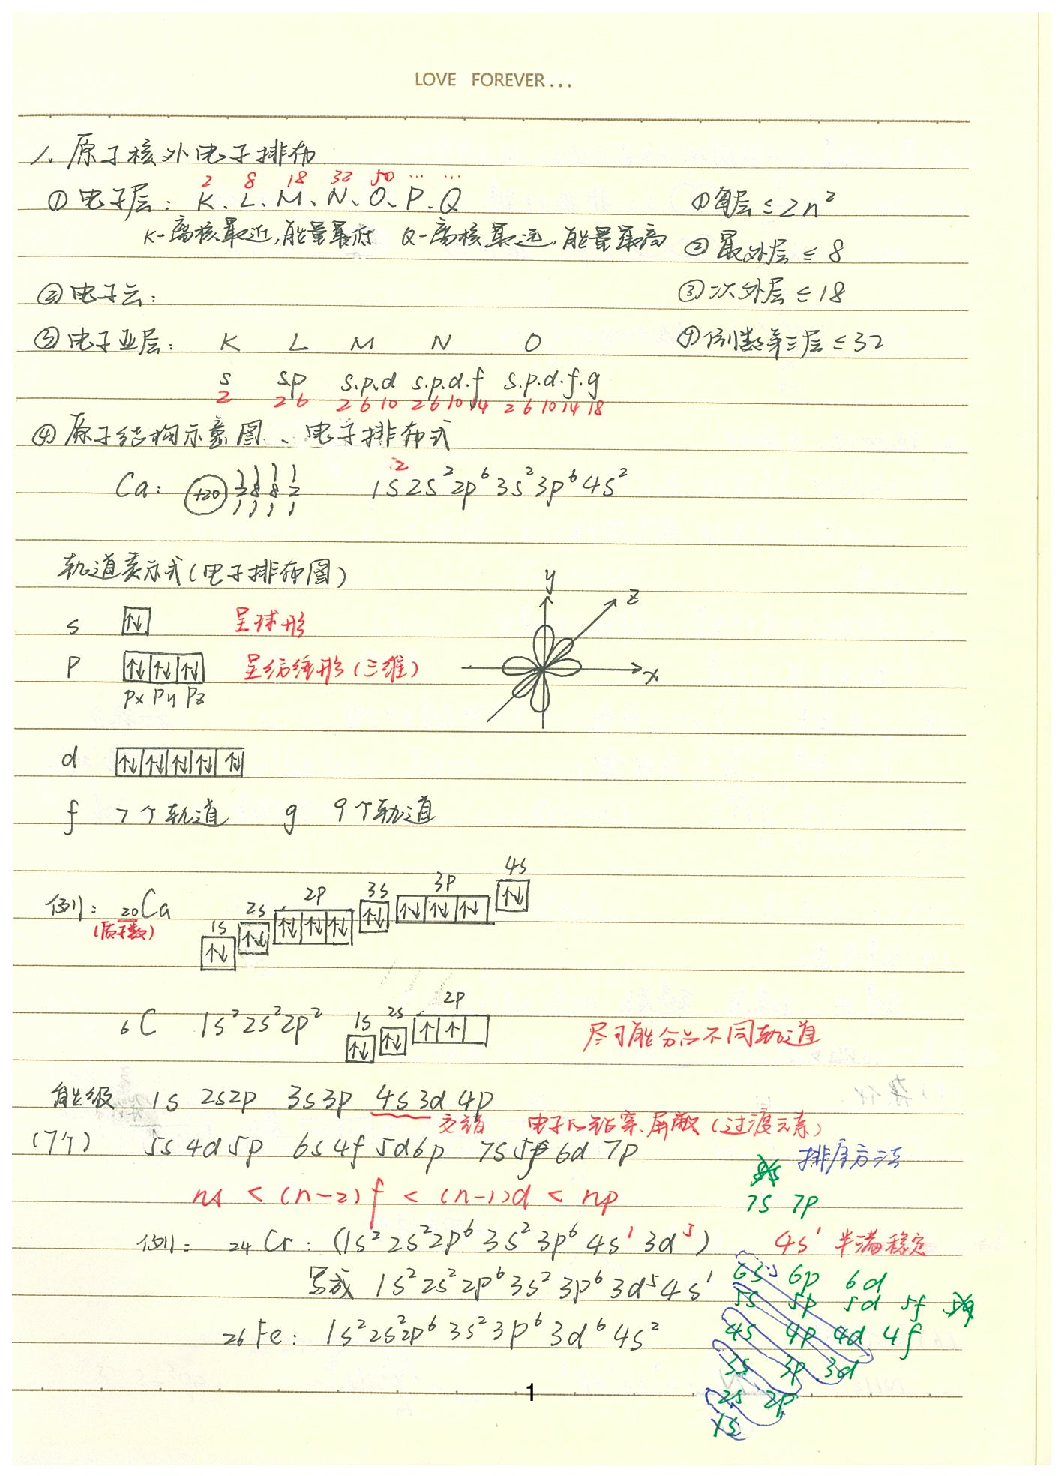 LOVE FOREVER...
1. 原子核外电子排布
2 8 18 32 50 ... ...
① 电子层: K、L、M、N、O、P、Q
① 每层≤2n²
K-离核最近,能量最低 Q-离核最远,能量最高
② 最外层≤8
② 电子云:
③ 次外层≤18
③ 电子亚层: K L M N O
④ 倒数第三层≤32
s s.p s.p.d s.p.d.f s.p.d.f.g
2 2 6 2 6 10 2 6 10 14 2 6 10 14 18
④ 原子结构示意图、电子排布式
Ca: +20 2 8 8 2 1s²2s²2p⁶3s²3p⁶4s²
轨道表示式(电子排布图)
y
z
x
s ↑↓ 呈球形
p ↑↓ ↑↓ ↑↓ 呈纺锤形(三维)
px py pz
d ↑↓ ↑↓ ↑↓ ↑↓ ↑↓
f 7个轨道 g 9个轨道
例: ₂₀Ca 1s 2s 2p 3s 3p 4s
(质子数) ↑↓ ↑↓ ↑↓ ↑↓ ↑↓ ↑↓ ↑↓ ↑↓ ↑↓ ↑↓
₆C 1s²2s²2p² 1s 2s 2p
↑↓ ↑↓ ↑ ↑
尽可能分占不同轨道
能级 1s 2s2p 3s3p 4s3d4p
交错 电子 屏蔽(过渡元素)
(7个) 5s4d5p 6s4f5d6p 7s5f6d7p
排序方法
ns < (n-2)f < (n-1)d < np
7s 7p
例: ₂₄Cr: (1s²2s²2p⁶3s²3p⁶4s¹3d⁵) 4s¹ 半满稳定
写成 1s²2s²2p⁶3s²3p⁶3d⁵4s¹
₂₆Fe: 1s²2s²2p⁶3s²3p⁶3d⁶4s²
6s 6p 6d
5s 5p 5d 5f
4s 4p 4d 4f
3s 3p 3d
2s 2p
1s
1